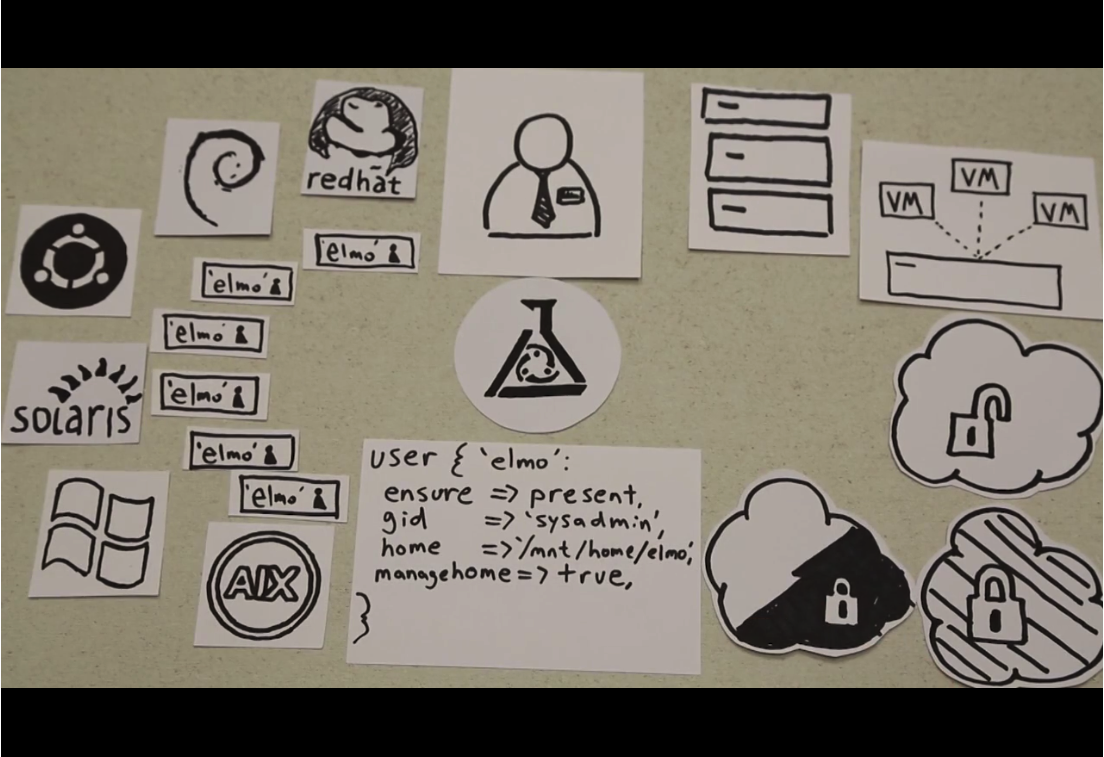 redhat
'elmo'
'elmo'
'elmo'
'elmo'
'elmo'
'elmo'
solaris
AIX
user { 'elmo':
ensure => present,
gid => 'sysadmin',
home => '/mnt/home/elmo',
managehome => true,
}
VM
VM
VM